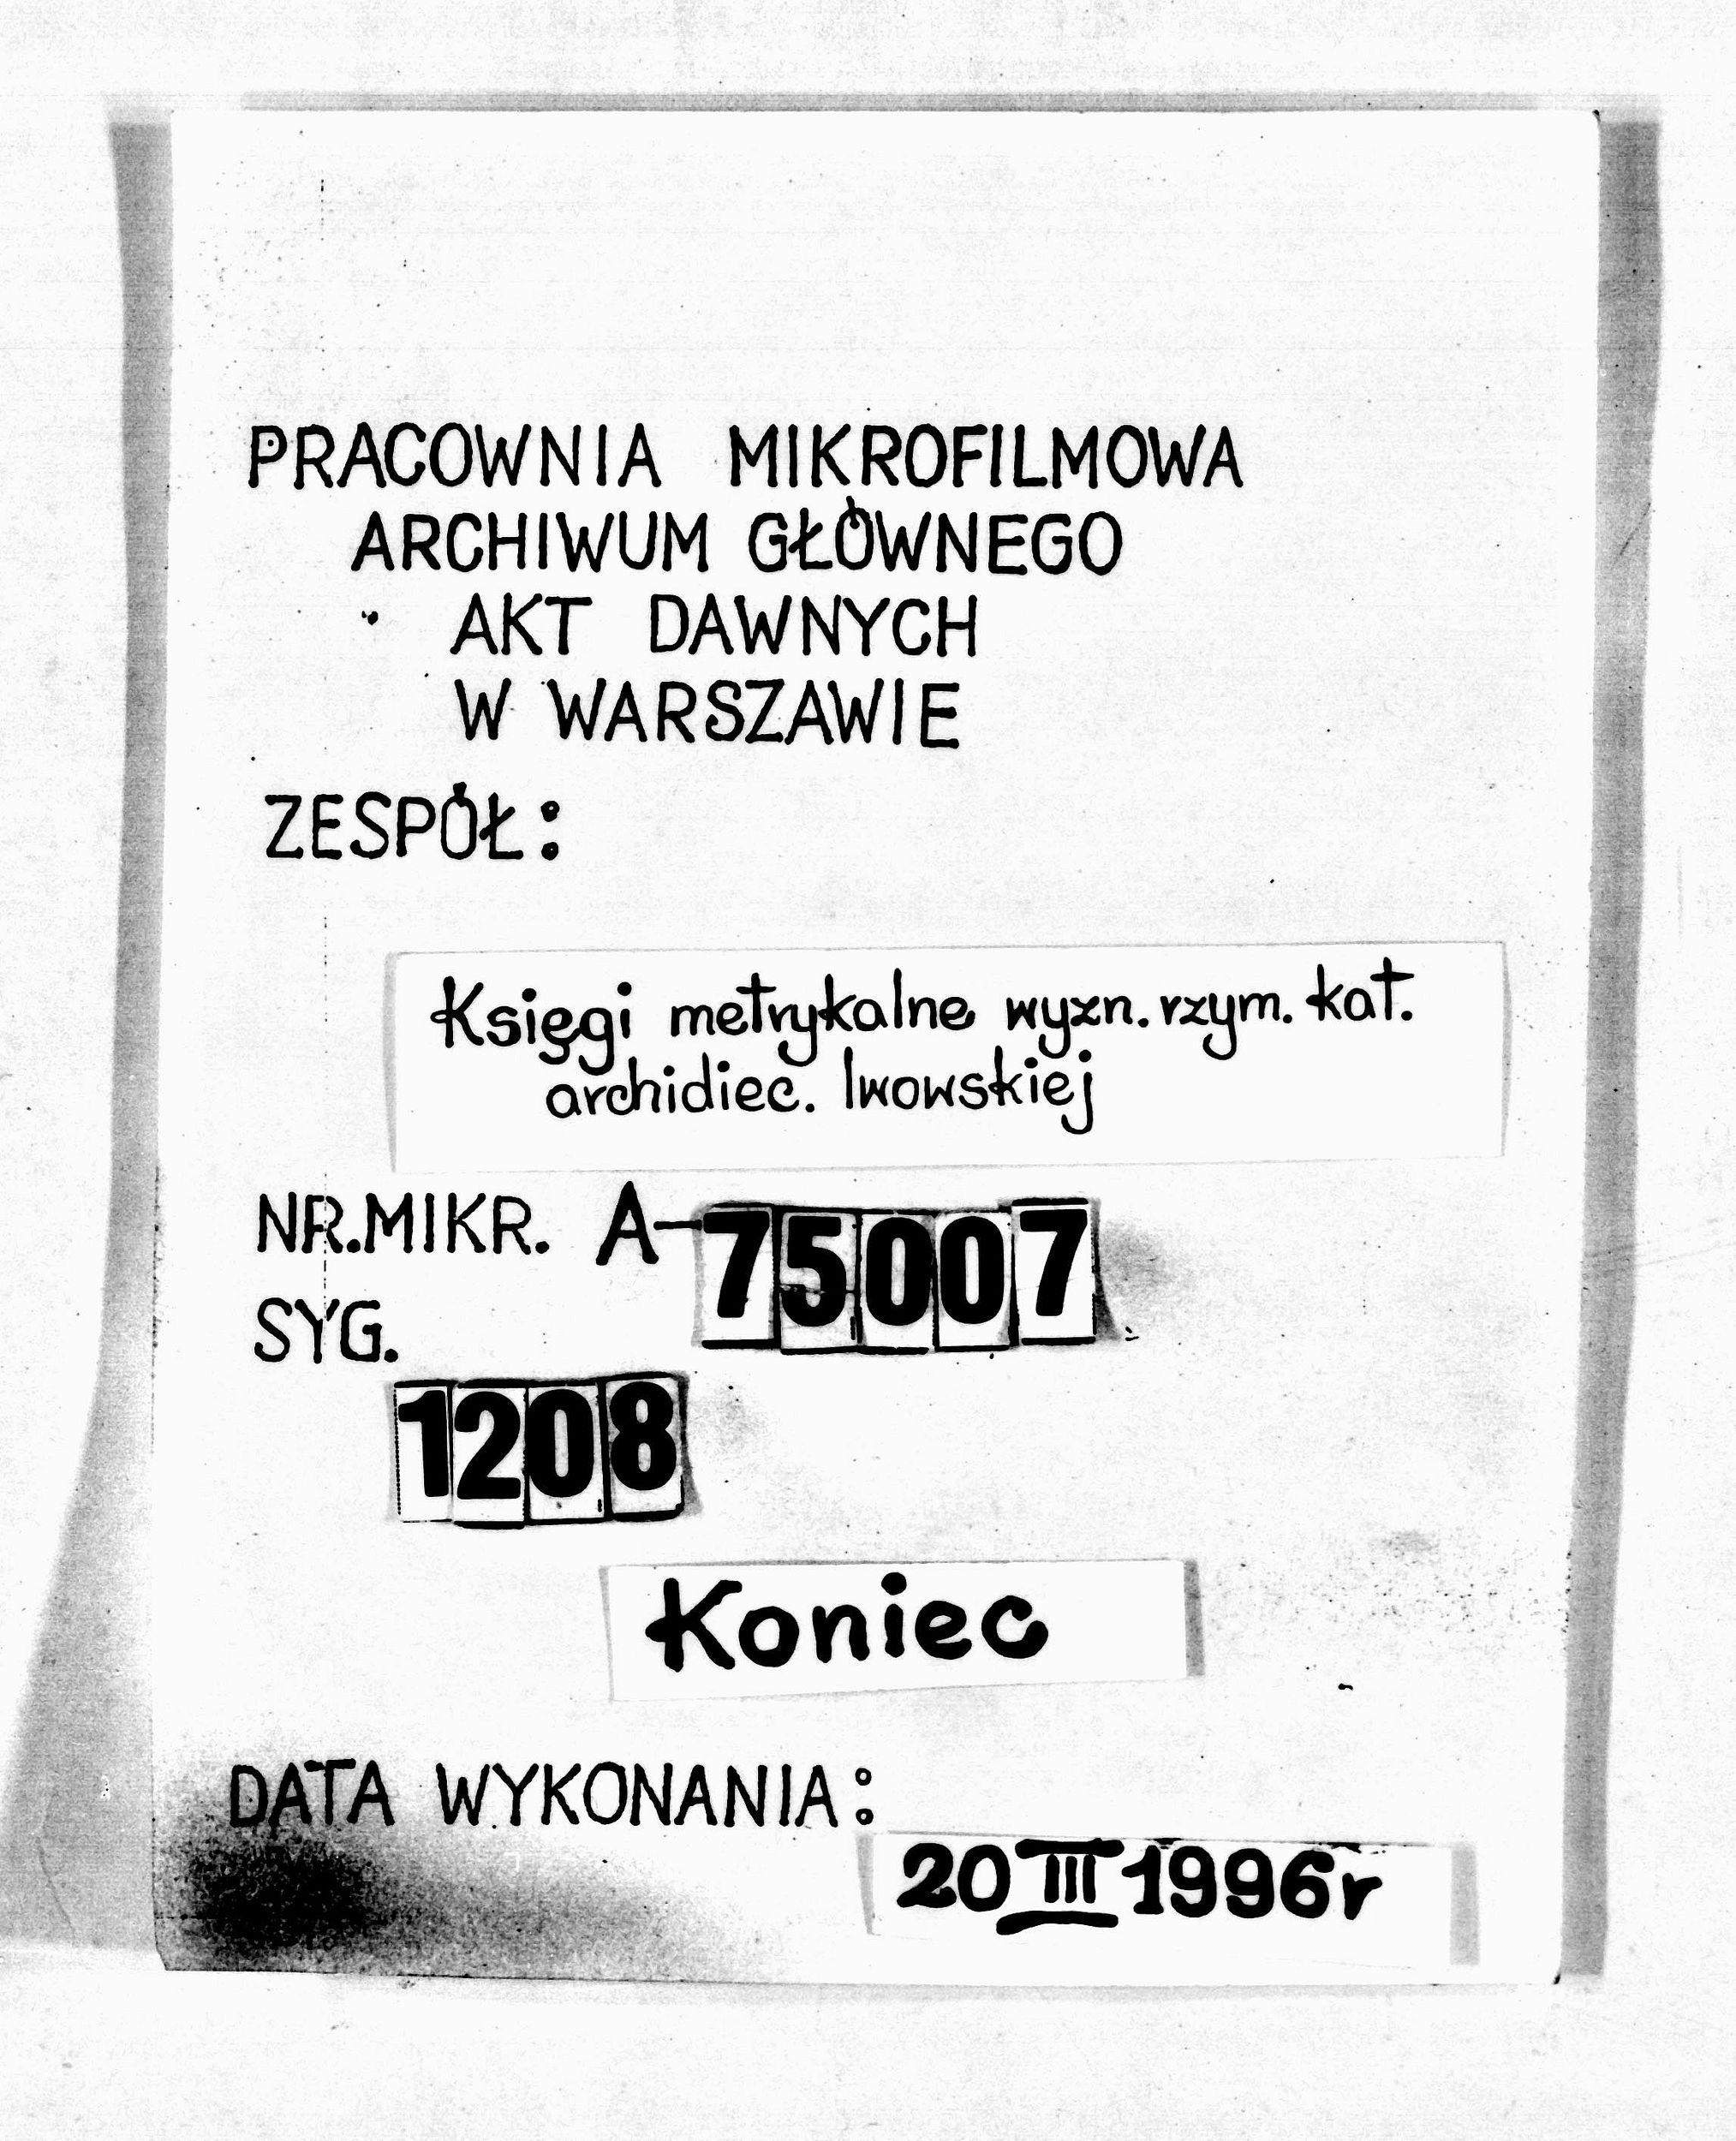 PRACOWNIA MIKROFILMOWA
ARCHIWUM GŁÓWNEGO
AKT DAWNYCH
W WARSZAWIE
ZESPÓŁ:
Księgi metrykalne wyzn. rzym. kat.
archidiec. lwowskiej
NR.MIKR. A-75007
SYG.
1208
Koniec
DATA WYKONANIA:
20 III 1996r